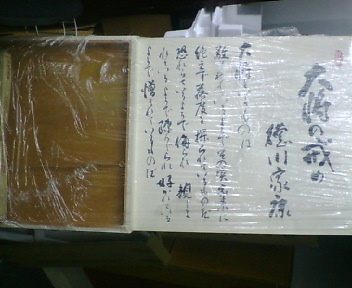 大将の戒め
徳川家康
大将というものは
敬われているようでその家来に
絶えず落度を探られているものだ
恐れられているようで侮られ 親しま
れているようで疎んじられ 好かれている
ようで憎まれているものだ